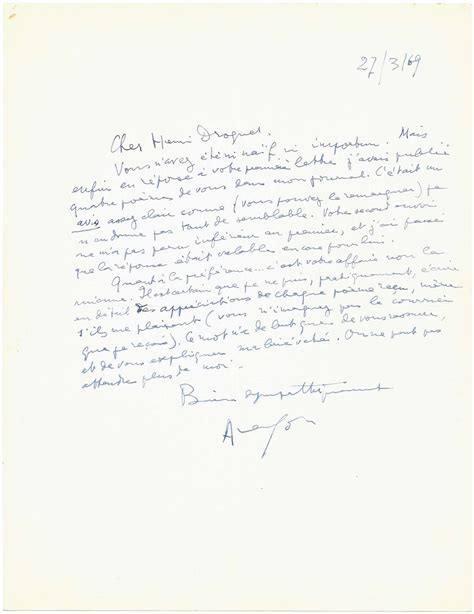 27/3/69
Cher Henri Droguet.
Vous n'avez été ni naïf ni importun. Mais
enfin en réponse à votre première lettre j'avais publié
quatre poèmes de vous dans mon journal. C'était un
avis assez clair comme (vous pouvez le remarquer) je
n'en donne pas tant de semblable. Votre second envoi
ne m'a pas paru inférieur au premier, et j'ai pensé
que la réponse était valable encore pour lui.
Quant à la préférence... c'est votre affaire non la
mienne. Il est certain que je ne puis, pratiquement, écrire
en détail des appréciations de chaque poème reçu, même
s'ils me plaisent (vous n'imaginez pas le courrier
que je reçois). Ce mot n'a de but que de vous rassurer,
et de vous expliquer ma brièveté. On ne peut pas
attendre plus de moi.
Bien sympathiquement
Aragon